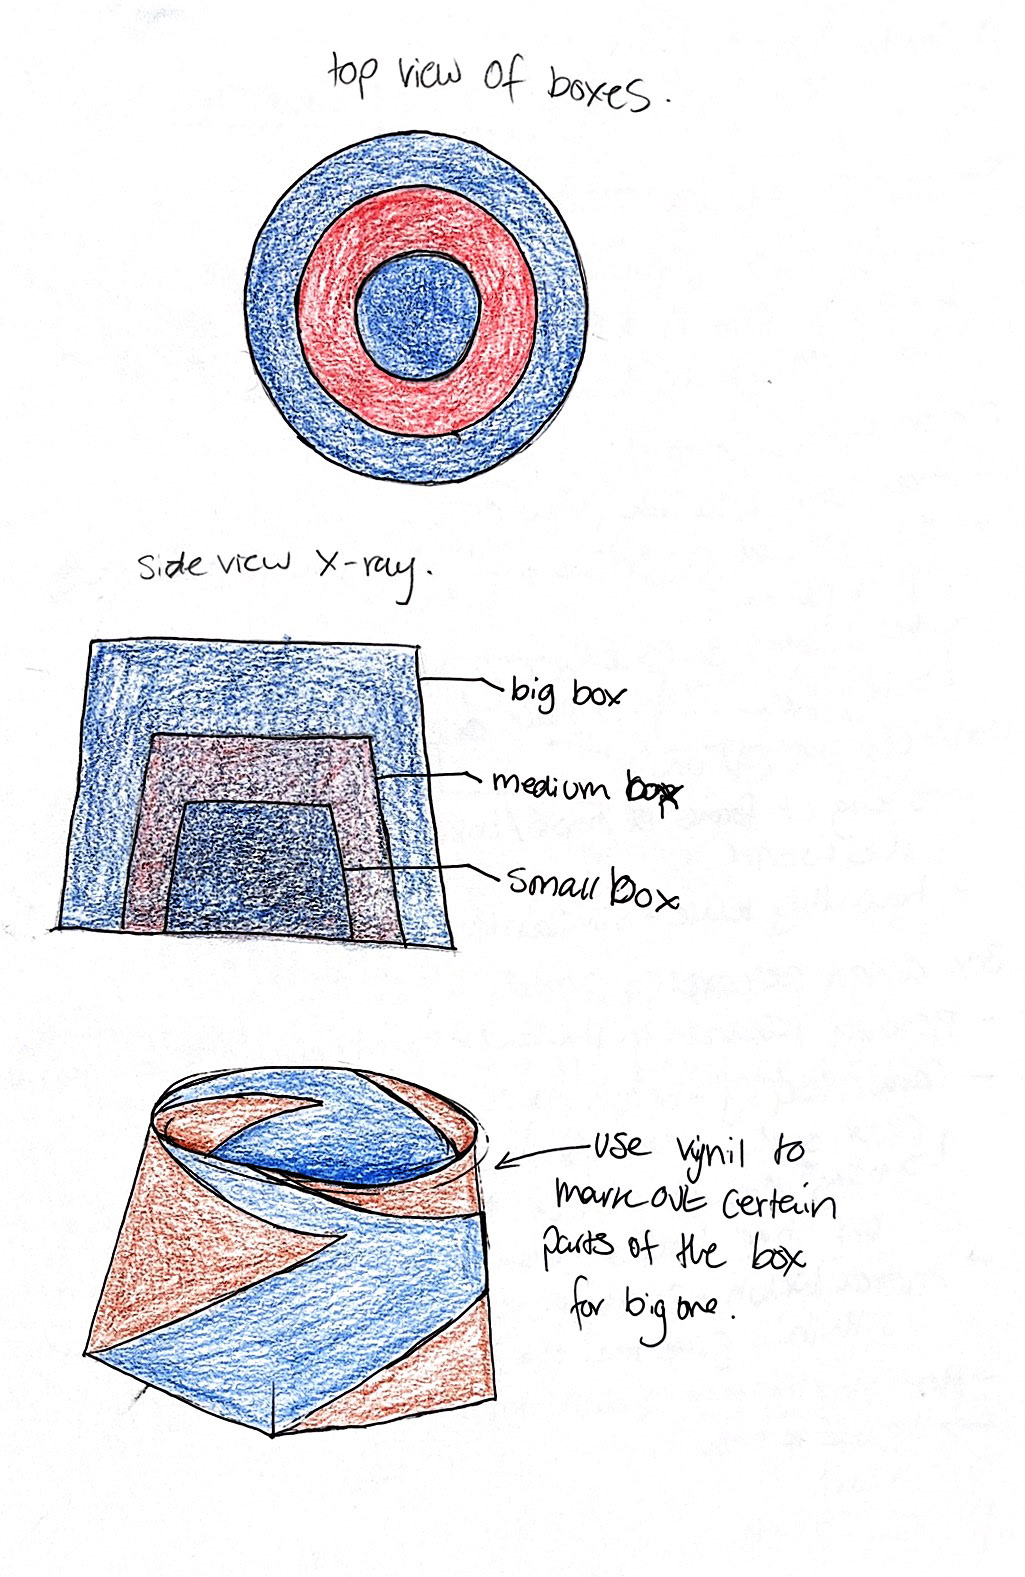 top view of boxes.
side view X-ray.
big box
medium box
small box
use vynil to
mark out certain
parts of the box
for big one.